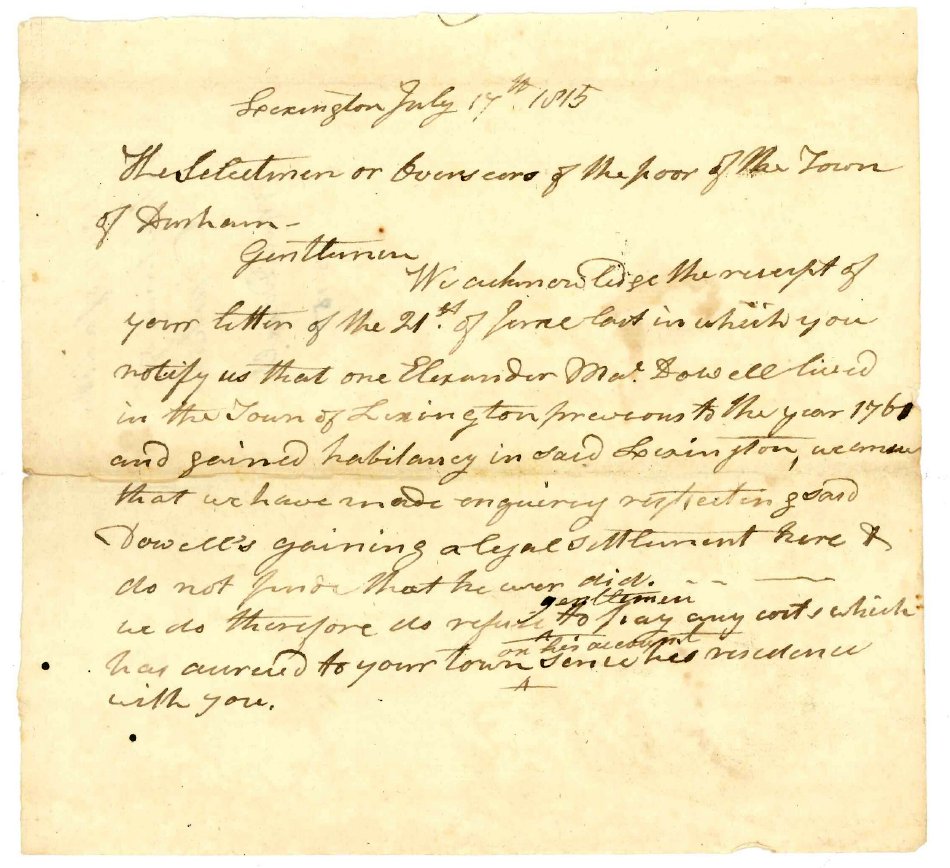 Lexington July 17th 1815
The Selectmen or Overseers of the poor of the Town
of Durham -
Gentlemen
We acknowledge the receipt of
your letter of the 21st. of June last in which you
notify us that one Elexander Mac. Dowell lived
in the Town of Lexington previous to the year 1760
and gained habitancy in said Lexington, we
that we have made enquirey respecting said
Dowell's gaining a legal settlement here &
do not finde that he ever did.
gentlemen
we do therefore do refuse to pay any costs which
on his account
has accrued to your town since his residence
with you.